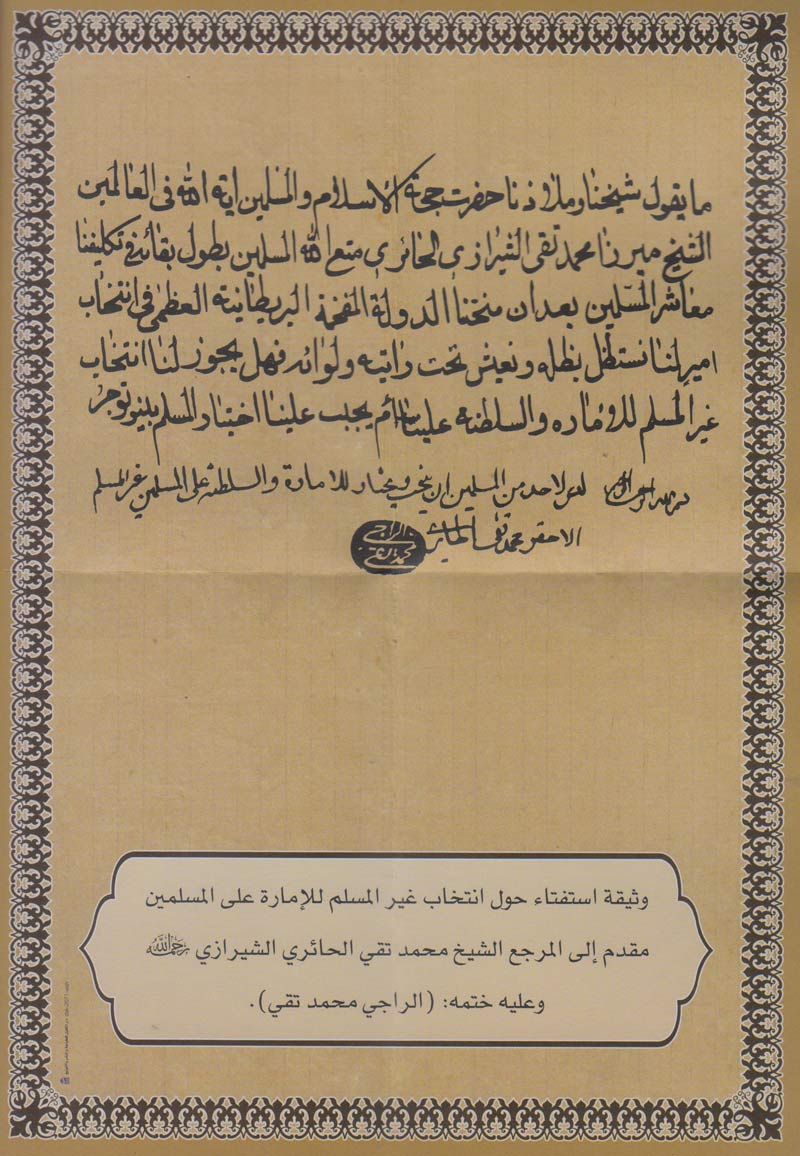 ما يقول شيخنا وملاذنا حضرت حجة الاسلام والمسلمين اية الله فى العالمين
الشيخ ميرزا محمد تقى الشيرازى الحائرى متع الله المسلمين بطول بقائه فى تكليفنا
معاشر المسلمين بعد ان منحتنا الدولة المفخمة البريطانية العظمى فى انتخاب
امير لنا نستظل بظله ونعيش تحت رايته ولوائه فهل يجوز لنا انتخاب
غير المسلم للاماره والسلطنة علينا ام يجب علينا اختيار المسلم بينو توجر
بسم الله الرحمن الرحيم ليس لاحد من المسلمين ان ينتخب ويختار للامارة والسلطنة على المسلمين غير المسلم
الاحقر محمد تقى الحائرى
الراجي محمد تقي
وثيقة استفتاء حول انتخاب غير المسلم للإمارة على المسلمين
مقدم إلى المرجع الشيخ محمد تقي الحائري الشيرازي رحمه الله
وعليه ختمه: (الراجي محمد تقي).